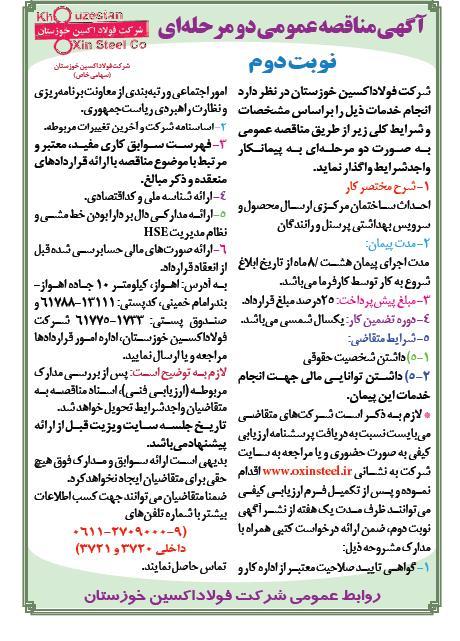 آگهی مناقصه عمومی دو مرحله‌ای
نوبت دوم
Khouzestan
شرکت فولاد اکسین خوزستان
Oxin Steel Co
شرکت فولاد اکسین خوزستان
(سهامی خاص)
شرکت فولاد اکسین خوزستان در نظر دارد
انجام خدمات ذیل را بر اساس مشخصات
و شرایط کلی زیر از طریق مناقصه عمومی
به صورت دو مرحله‌ای به پیمانکار
واجد شرایط واگذار نماید.
۱- شرح مختصر کار
احداث ساختمان مرکزی ارسال محصول و
سرویس بهداشتی پرسنل و رانندگان
۲- مدت پیمان:
مدت اجرای پیمان هشت /۸ ماه از تاریخ ابلاغ
شروع به کار توسط کارفرما می‌باشد.
۳- مبلغ پیش پرداخت: ۲۵ درصد مبلغ قرارداد.
۴- دوره تضمین کار: یکسال شمسی می‌باشد.
۵- شرایط متقاضی:
۵-۱) داشتن شخصیت حقوقی
۵-۲) داشتن توانایی مالی جهت انجام
خدمات این پیمان.
* لازم به ذکر است شرکت‌های متقاضی
می‌بایست نسبت به دریافت پرسشنامه ارزیابی
کیفی به صورت حضوری و یا مراجعه به سایت
شرکت به نشانی www.oxinsteel.ir اقدام
نموده و پس از تکمیل فرم ارزیابی کیفی
می‌توانند ظرف مدت یک هفته از نشر آگهی
نوبت دوم، ضمن ارائه درخواست کتبی همراه با
مدارک مشروحه ذیل:
۱- گواهی تایید صلاحیت معتبر از اداره کار و
امور اجتماعی و رتبه‌بندی از معاونت برنامه‌ریزی
و نظارت راهبردی ریاست جمهوری.
۲- اساسنامه شرکت و آخرین تغییرات مربوطه.
۳- فهرست سوابق کاری مفید، معتبر و
مرتبط با موضوع مناقصه با ارائه قراردادهای
منعقده و ذکر مبالغ.
۴- ارائه شناسه ملی و کد اقتصادی.
۵- ارائه مدارکی دال بر دارا بودن خط مشی و
نظام مدیریت HSE
۶- ارائه صورت‌های مالی حسابرسی شده قبل
از انعقاد قرارداد.
به آدرس: اهواز، کیلومتر ۱۰ جاده اهواز-
بندرامام خمینی، کدپستی: ۱۳۱۱۱-۶۱۷۸۸ و
صندوق پستی: ۱۷۳۳-۶۱۷۷۵ شرکت
فولاد اکسین خوزستان، اداره امور قراردادها
مراجعه و یا ارسال نمایید.
لازم به توضیح است: پس از بررسی مدارک
مربوطه (ارزیابی فنی)، اسناد مناقصه به
متقاضیان واجد شرایط تحویل خواهد شد.
تاریخ جلسه سایت ویزیت قبل از ارائه
پیشنهاد می‌باشد.
بدیهی است ارائه سوابق و مدارک فوق هیچ
حقی برای متقاضیان ایجاد نخواهد کرد.
ضمنا متقاضیان می‌توانند جهت کسب اطلاعات
بیشتر با شماره تلفن‌های
(۰۶۱۱-۲۷۰۹۰۰۰-۹
داخلی ۳۷۲۰ و ۳۷۲۱)
تماس حاصل نمایند.
روابط عمومی شرکت فولاد اکسین خوزستان